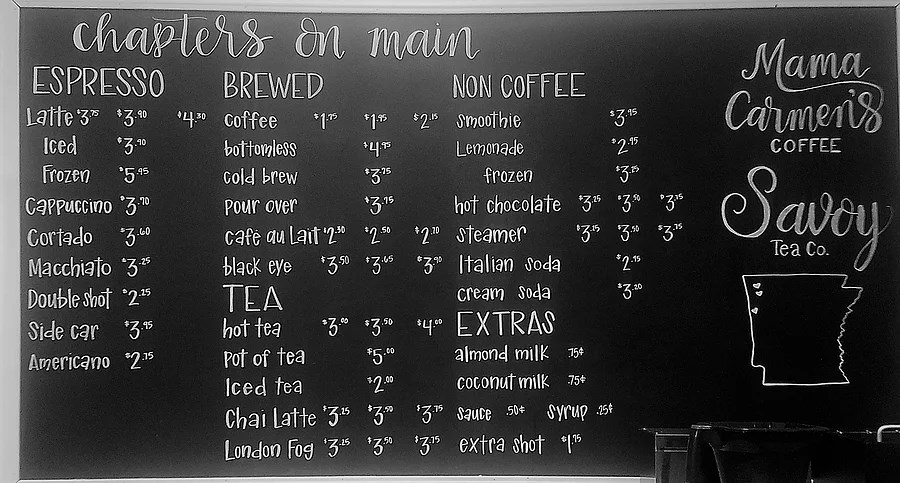 chapters on main
ESPRESSO
Latte $3.75 $3.90 $4.30
Iced $3.90
Frozen $5.95
Cappuccino $3.70
Cortado $3.60
Macchiato $3.25
Double shot $2.25
Side car $3.95
Americano $2.75
BREWED
coffee $1.75 $1.95 $2.15
bottomless $4.95
cold brew $3.75
pour over $3.75
café au Lait $2.30 $2.50 $2.70
black eye $3.50 $3.65 $3.90
TEA
hot tea $3.00 $3.50 $4.00
pot of tea $5.00
Iced tea $2.00
Chai Latte $3.25 $3.50 $3.75
London Fog $3.25 $3.50 $3.75
NON COFFEE
smoothie $3.95
Lemonade $2.95
frozen $3.25
hot chocolate $3.25 $3.50 $3.75
steamer $3.25 $3.50 $3.75
Italian soda $2.95
cream soda $3.20
EXTRAS
almond milk .75¢
coconut milk .75¢
sauce .50¢ syrup .25¢
extra shot $1.75
Mama
Carmen's
COFFEE
Savoy
Tea Co.